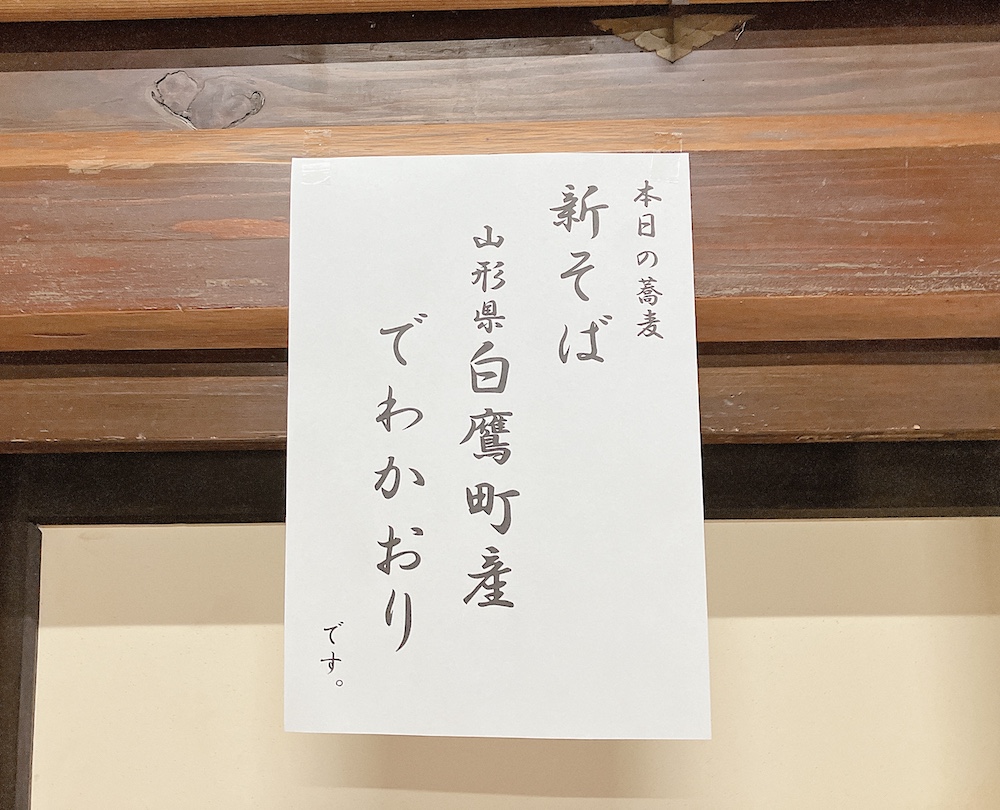 本日の蕎麦
新そば
山形県白鷹町産
でわかおり
です。